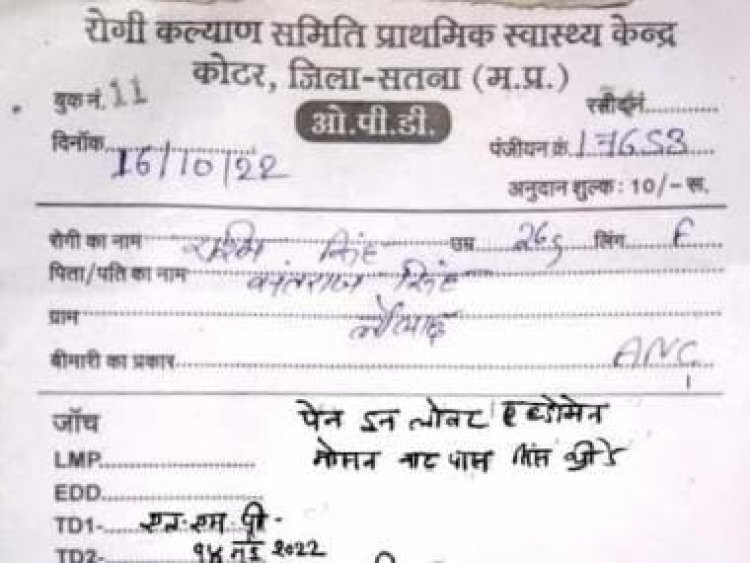 रोगी कल्याण समिति प्राथमिक स्वास्थ्य केन्द्र
कोटर, जिला-सतना (म.प्र.)
बुक नं. 11 रसीद नं.
ओ.पी.डी.
दिनॉक 16/10/22 पंजीयन क्रं. 17653
अनुदान शुल्क : 10/- रू.
रोगी का नाम रश्मि सिंह उम्र 26 लिंग F
पिता/पति का नाम सिंह
ग्राम
बीमारी का प्रकार ANC
जॉच पेन इन लोवर एबडोमेन
LMP मोसन नाट पास सिंस थ्री डे
EDD
TD1- एल.एम.पी-
TD2- १४ मई 2022